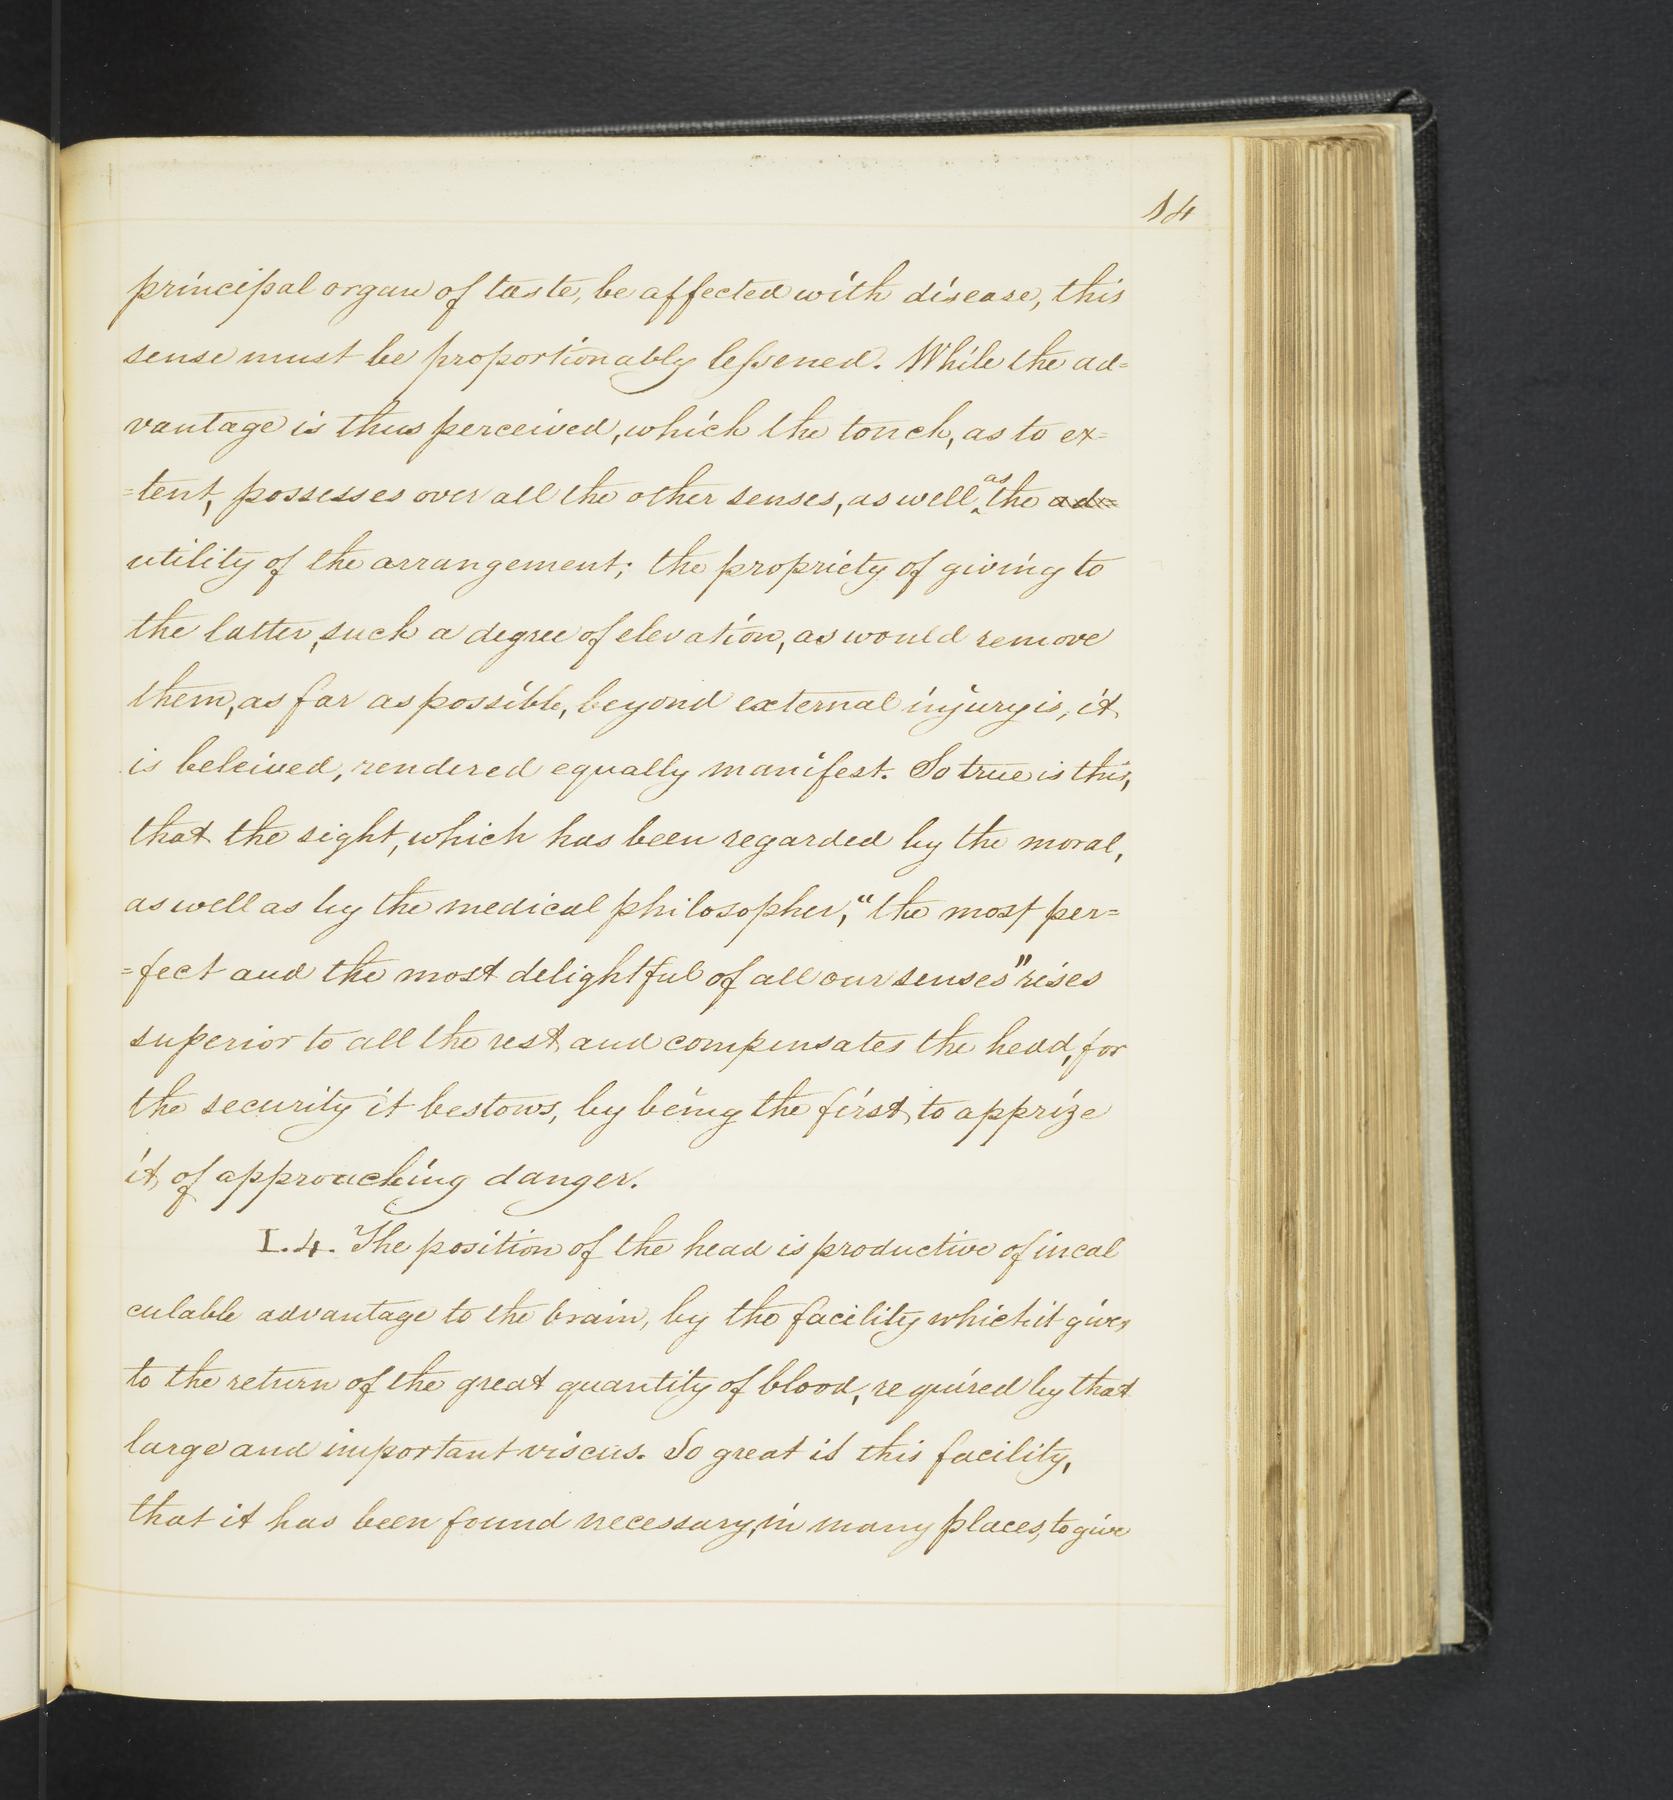 14
principal organ of taste, be affected with disease, this
sense must be proportionably lessened. While the ad=
vantage is thus perceived, which the touch, as to ex=
=tent, possesses over all the other senses, as well as the ad=
utility of the arrangement; the propriety of giving to
the latter, such a degree of elevation, as would remove
them, as far as possible, beyond external injury is, it
is beleived, rendered equally manifest. So true is this,
that the sight, which has been regarded by the moral,
as well as by the medical philosopher, "the most per=
=fect and the most delightful of all our senses" rises
superior to all the rest, and compensates the head, for
the security it bestows, by being the first, to apprize
it, of approaching danger.
I. 4. The position of the head is productive of incal
culable advantage to the brain, by the facility which it gives
to the return of the great quantity of blood, required by that
large and important viscus. So great is this facility,
that it has been found necessary, in many places, to give